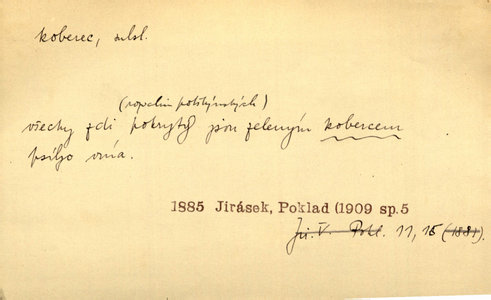 koberec, subst.
(ropalin potštýnských)
všechy zdi pokryty jsou zeleným kobercem
psího vína.
1885 Jirásek, Poklad (1909 sp.5
Jir. V. Pokl. 11, 15 (1881).